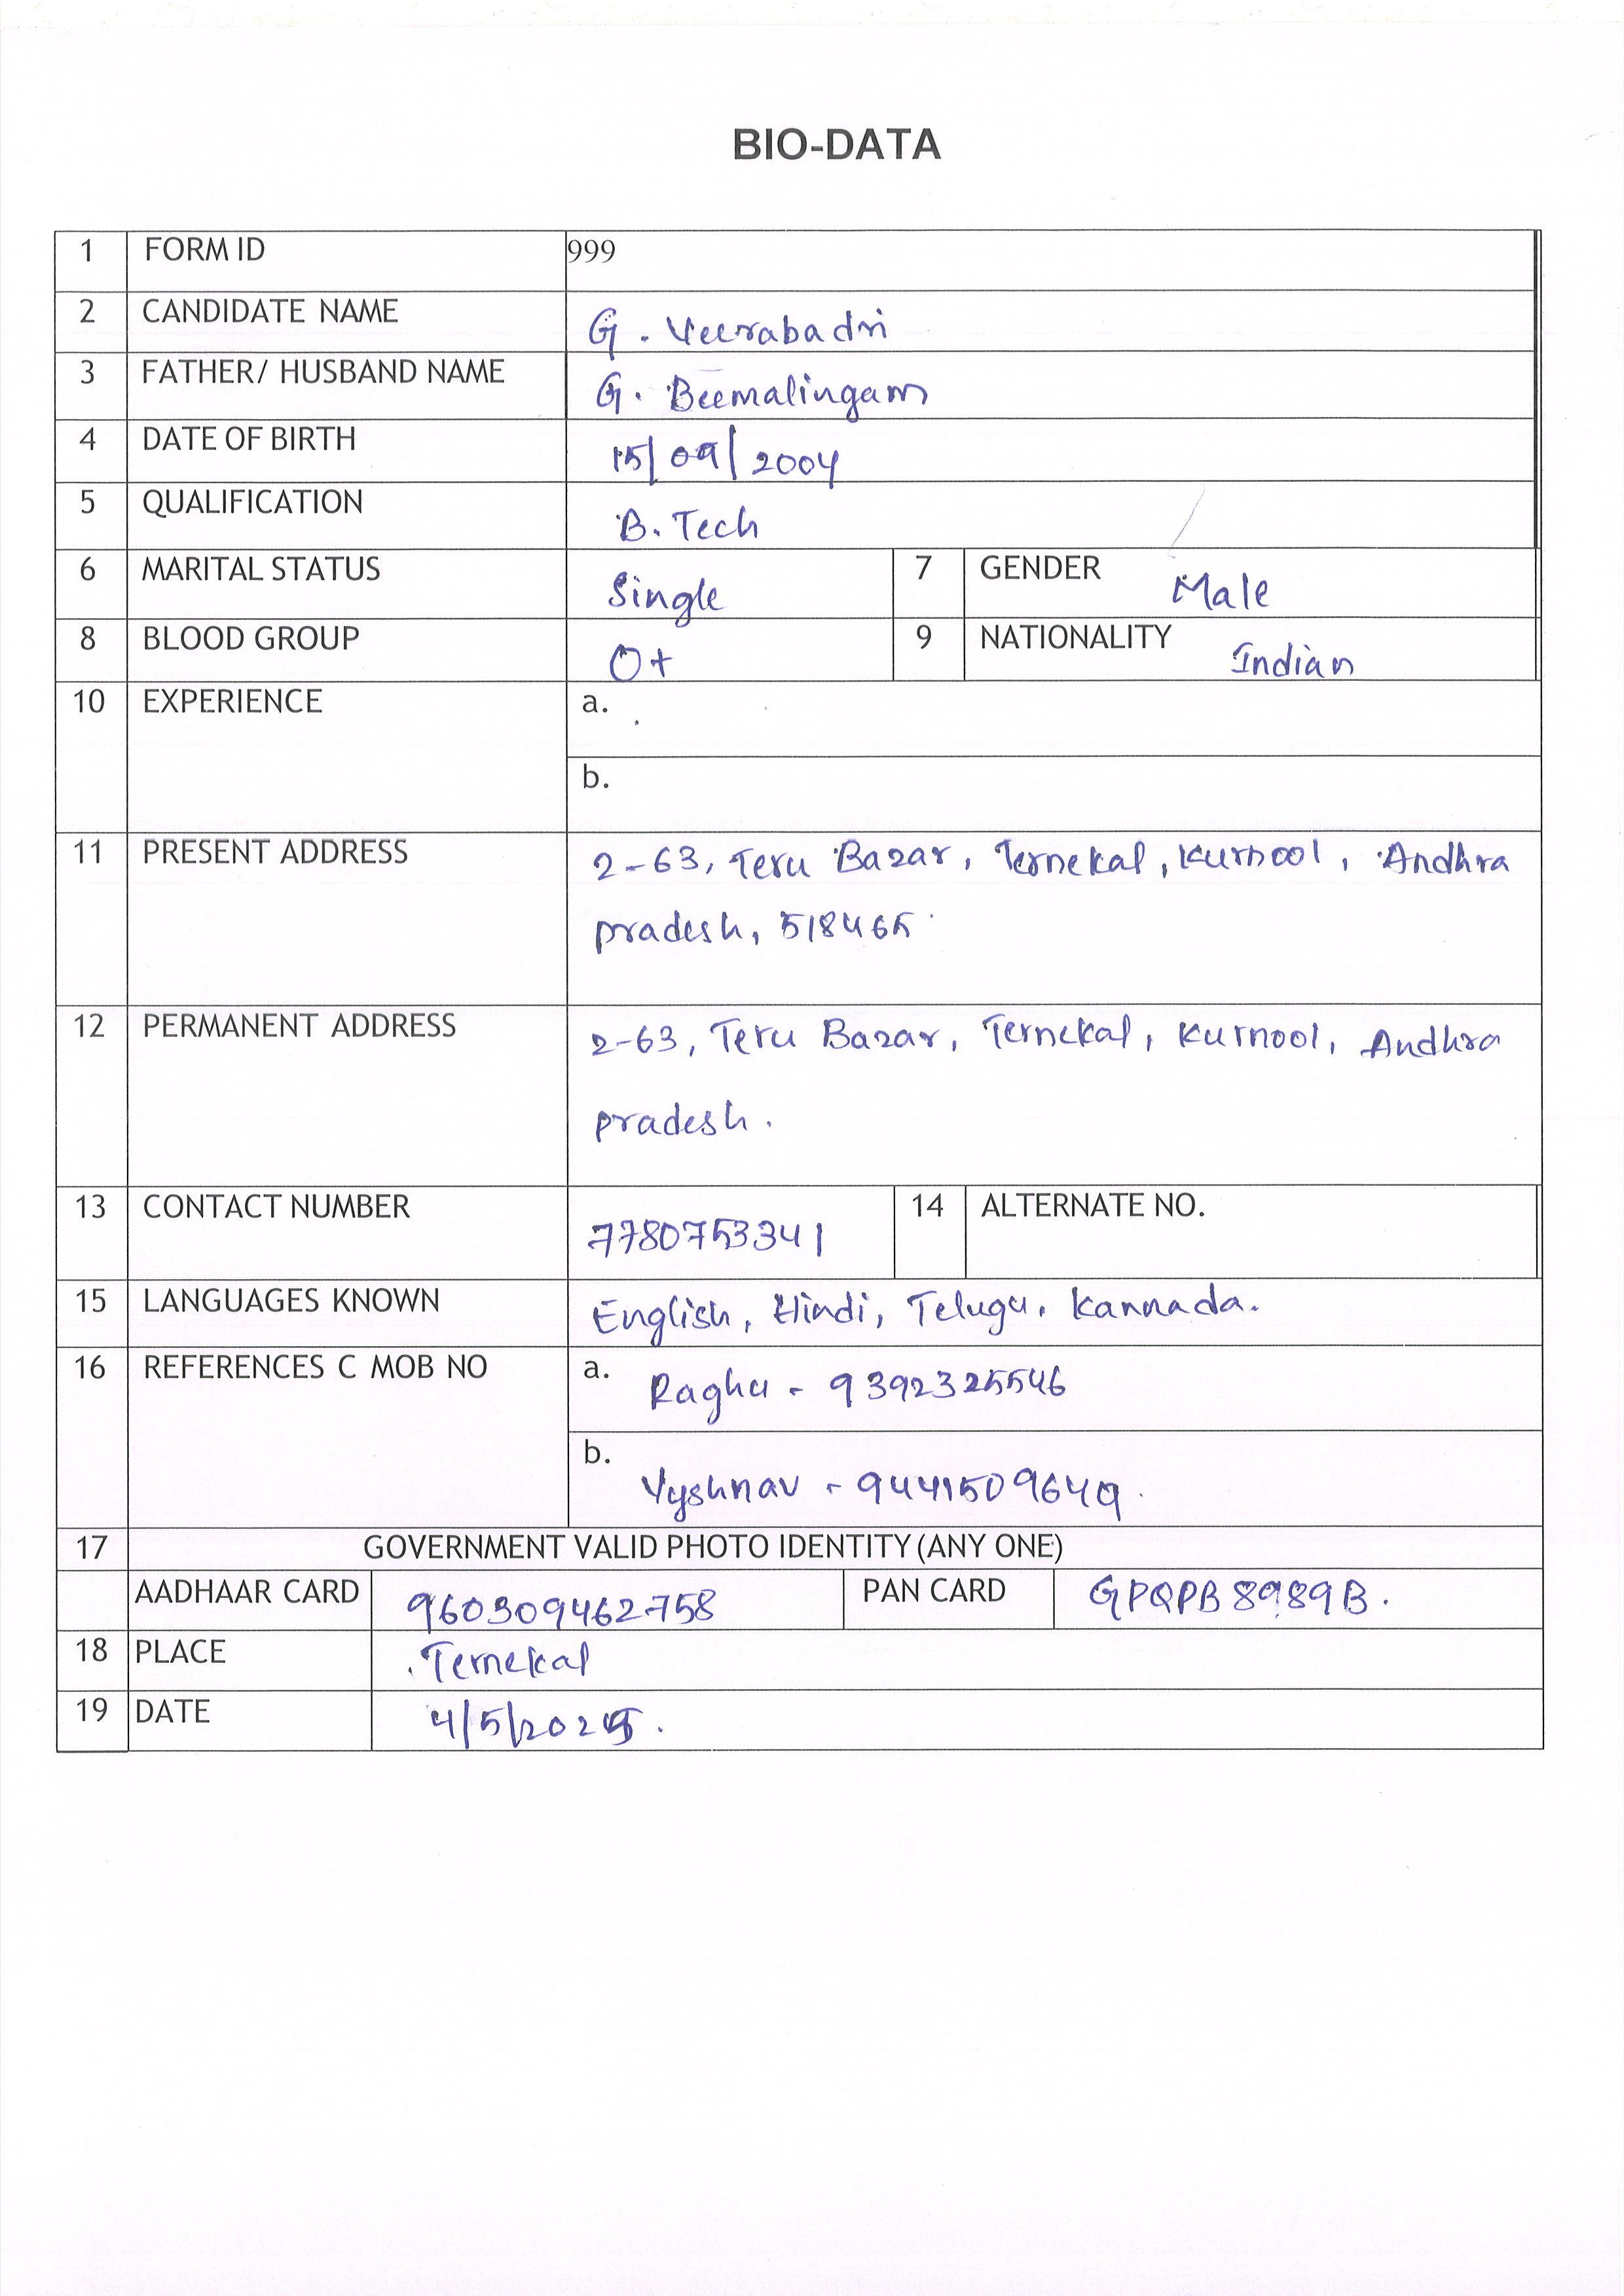 BIO-DATA
1 FORM ID 999
2 CANDIDATE NAME G. Veerabadri
3 FATHER/ HUSBAND NAME G. Beemalingam
4 DATE OF BIRTH 15/09/2004
5 QUALIFICATION B. Tech
6 MARITAL STATUS Single 7 GENDER Male
8 BLOOD GROUP O+ 9 NATIONALITY Indian
10 EXPERIENCE a.
b.
11 PRESENT ADDRESS 2-63, Teru Bazar, Ternekal, Kurnool, Andhra
pradesh, 518465
12 PERMANENT ADDRESS 2-63, Teru Bazar, Ternekal, Kurnool, Andhra
pradesh.
13 CONTACT NUMBER 7780753341 14 ALTERNATE NO.
15 LANGUAGES KNOWN English, Hindi, Telugu, Kannada.
16 REFERENCES C MOB NO a. Raghu - 9392325546
b. Vyshnav - 9441509649.
17 GOVERNMENT VALID PHOTO IDENTITY (ANY ONE)
AADHAAR CARD 960309462758 PAN CARD GPQPB8989B.
18 PLACE Ternekal
19 DATE 4/5/2025.